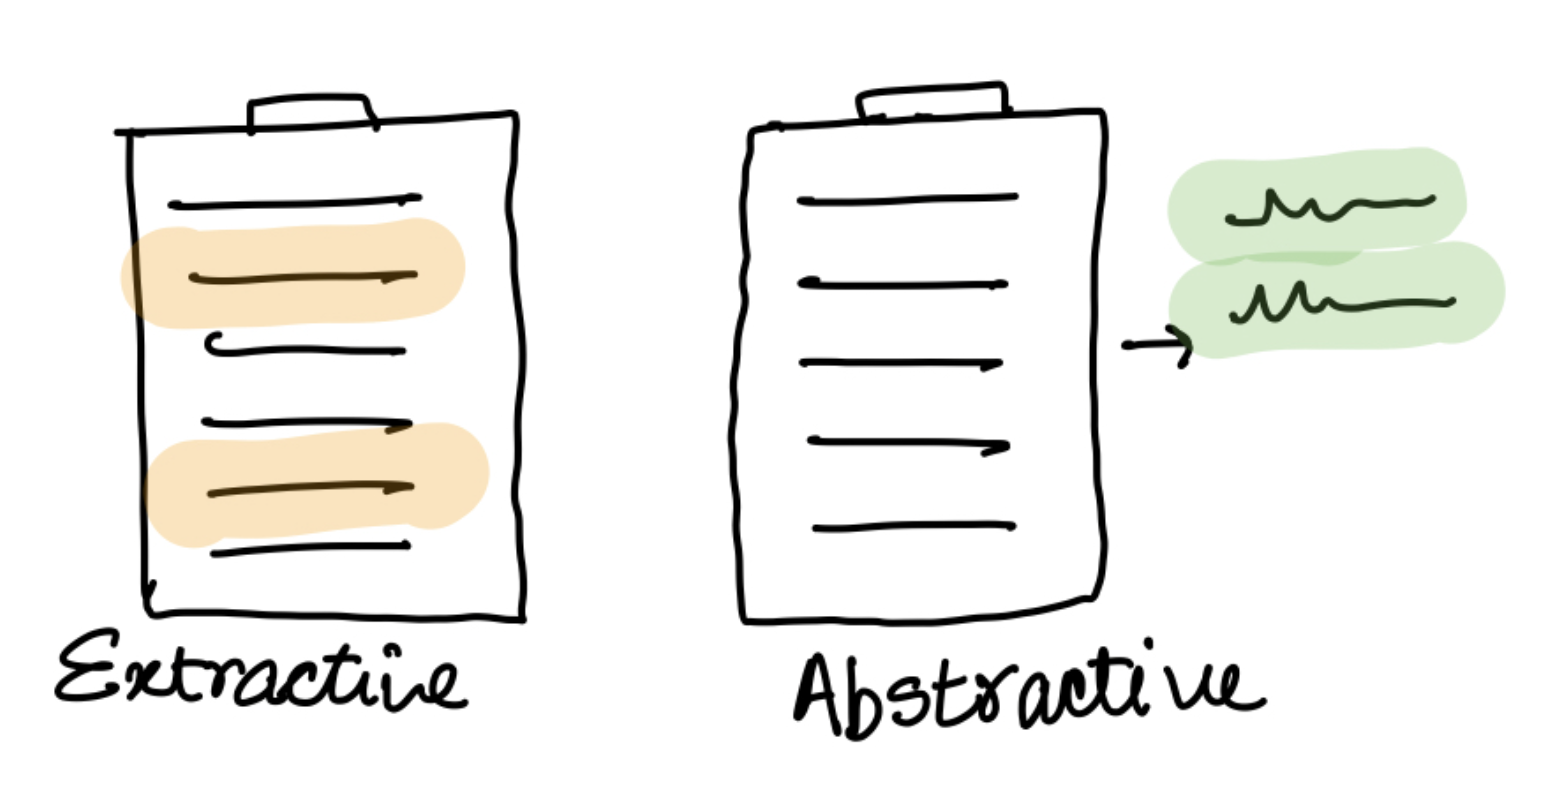 Extractive
Abstractive